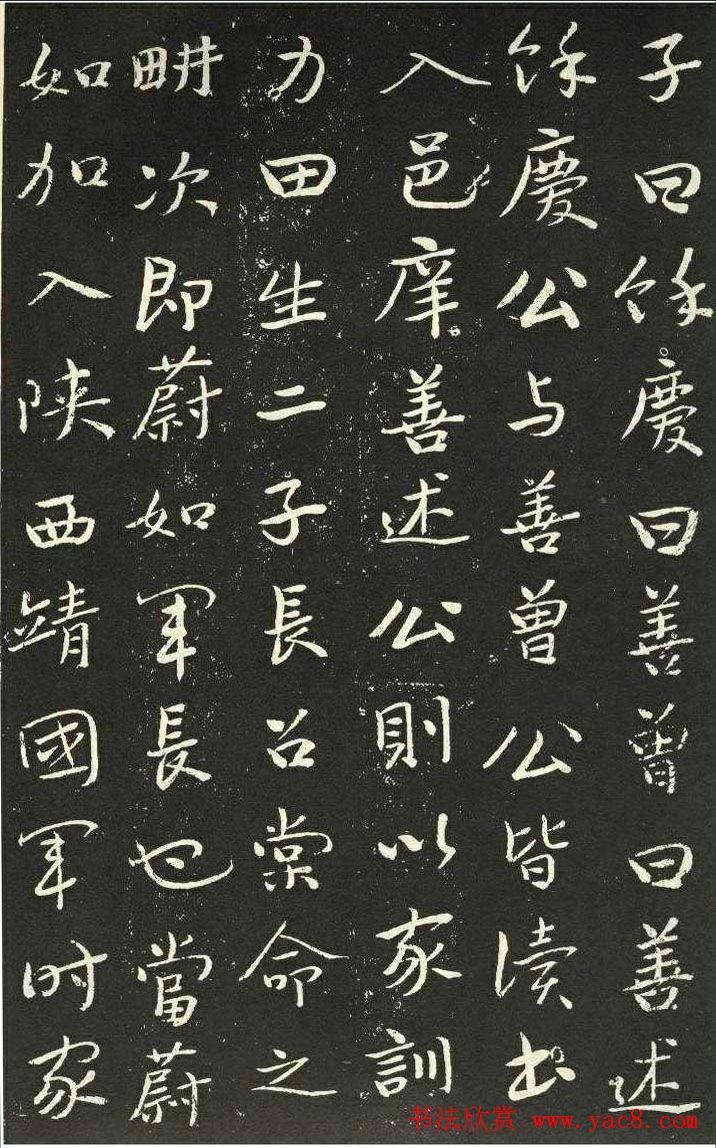 子曰餘慶曰善曾曰善述
餘慶公与善曾公皆读书
入邑庠善述公則以家訓
力田生二子長召棠命之
畊次即蔚如軍長也當蔚
如加入陕西靖國軍时家
书法欣赏 www.yac8.com